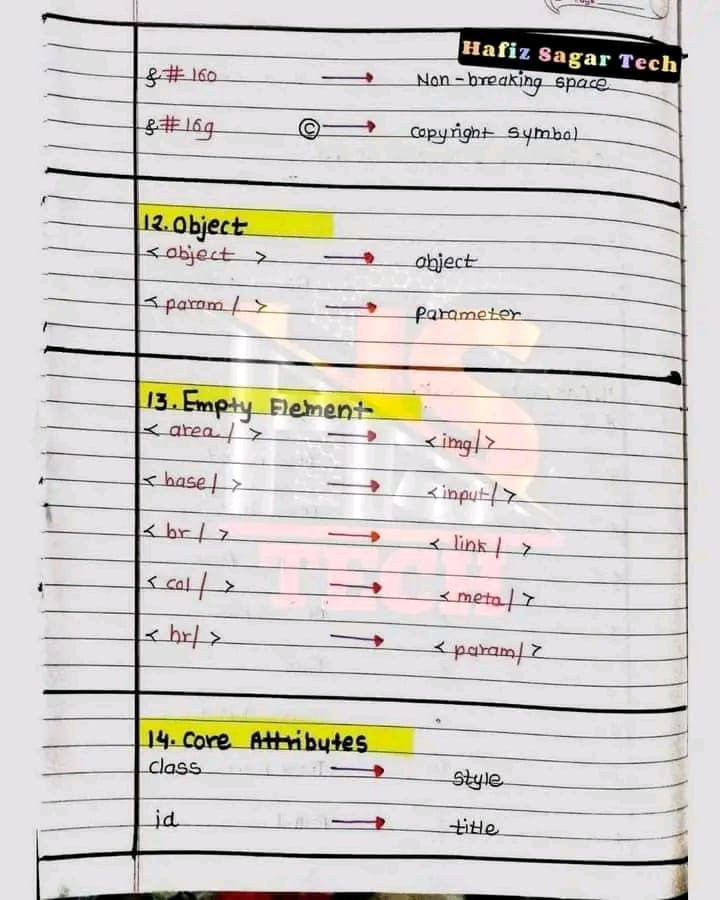 Hafiz Sagar Tech
&#160 → Non-breaking space
&#169 © → Copyright Symbol
12. Object
< object > → object
< param / > → parameter
13. Empty Element
< area / > → <img/>
< base / > → <input/>
< br / > → < link / >
< col / > → < meta / >
< hr/ > → < param/ >
14. Core Attributes
class → style
id → title
HS
TECH